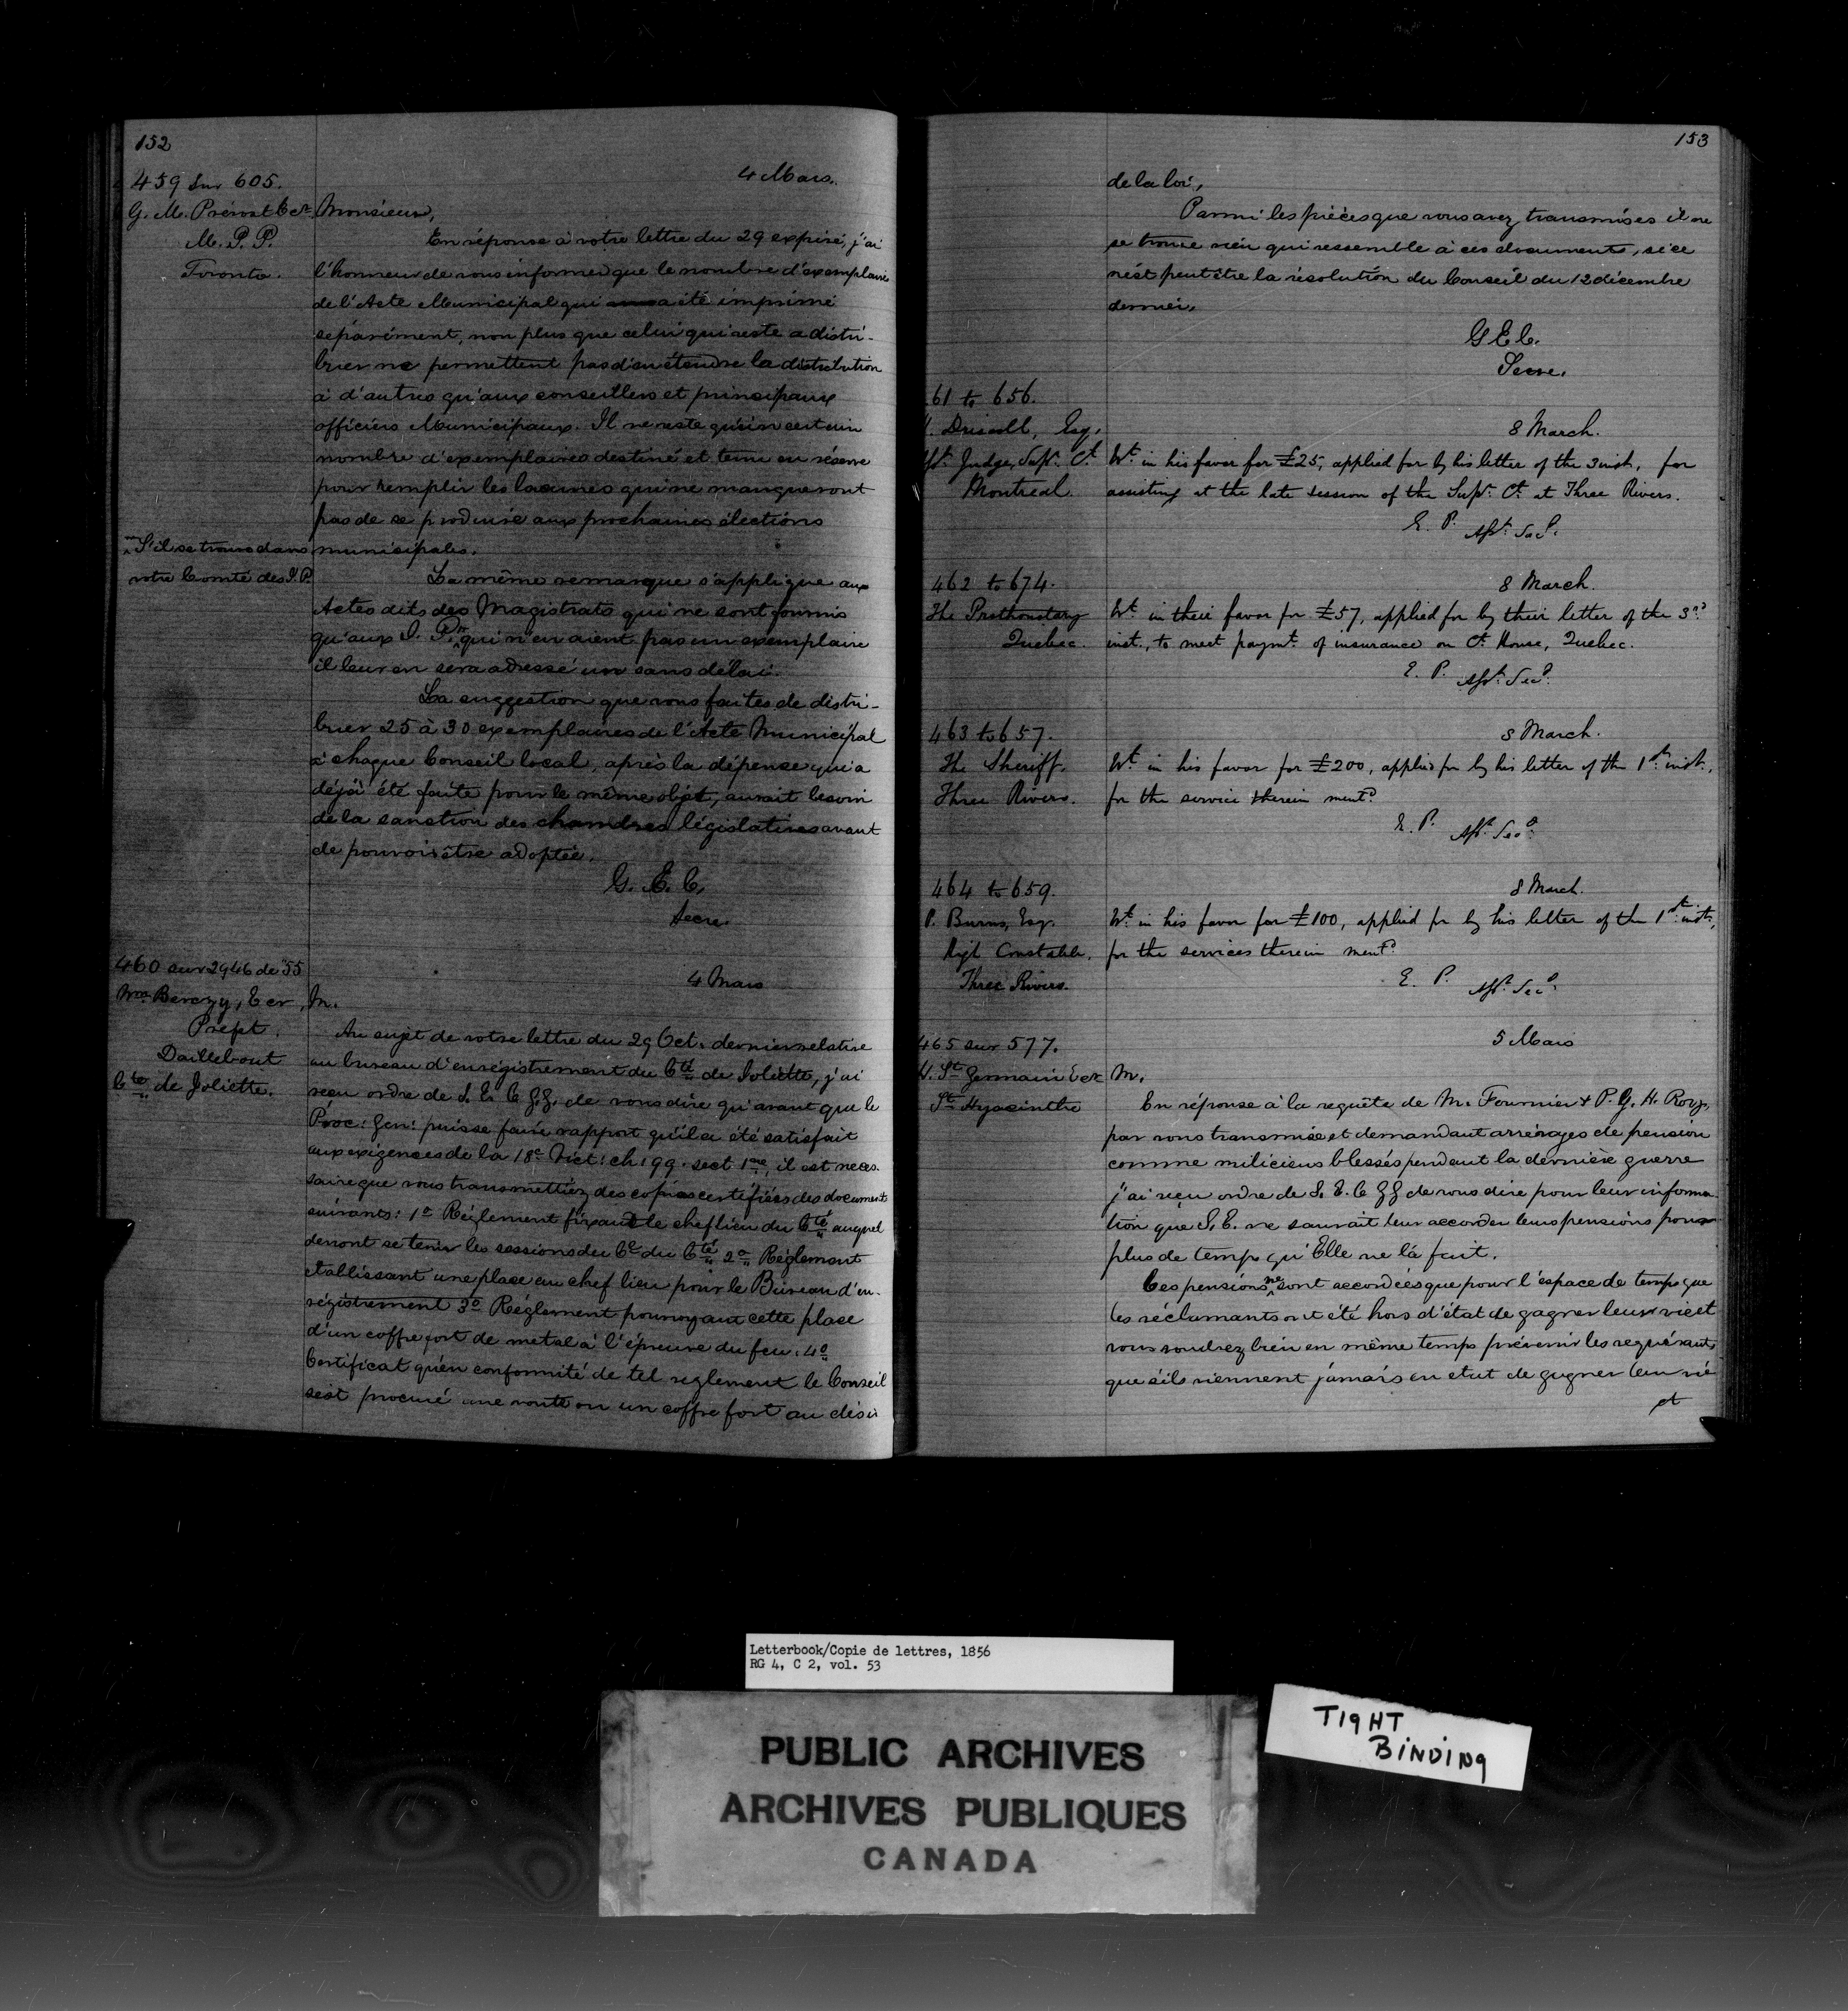 152
459 sur 605.
4 Mars.
G. M. Prévost Ecr.
M. P. P.
Toronto.
Monsieur,
En réponse à votre lettre du 29 expiré, j'ai
l'honneur de vous informer que le nombre d'exemplaire
de l'Acte Municipal qui a été imprimé
séparément, non plus que celui qui reste a distri-
buer ne permettent pas d'en étendre la distribution
à d'autres qu'aux conseillers et principaux
officiers Municipaux. Il ne reste qu'un certain
nombre d'exemplaires destiné et tenu en réserve
pour remplir les lacunes qui ne manqueront
pas de se produire aux prochaines élections
municipales.
S'il se trouve dans
votre Comté des J. P.
La même remarque s'applique aux
Actes dits des Magistrats qui ne sont fournis
qu'aux J. P. qui n'en aient pas un exemplaire
il leur en sera adressé un sans délai.
La suggestion que vous faites de distri-
buer 25 à 30 exemplaires de l'Acte Municipal
à chaque Conseil local, après la dépense qui a
déjà été faite pour le même objet, aurait besoin
de la sanction des chambres législatives avant
de pouvoir être adoptée.
G. E. C.
Secre.
460 sur 2946 de "55
4 Mars
Wm Berczy, Ecr,
Préfet.
Daillebout
Cté de Joliette.
M.
Au sujet de votre lettre du 29 Oct. dernier relative
au bureau d'enrégistrement du Cté de Joliette, j'ai
reçu ordre de S. E. le G.G. de vous dire qu'avant que le
Proc: Gen: puisse faire rapport qu'il a été satisfait
aux exigences de la 18e Vict: ch: 99. sect 1ere, il est neces-
saire que vous transmettiez des copies certifiées des documents
suivants: 1o Règlement fixant le chef lieu du Cté auquel
devront se tenir les sessions du Cl du Cté 2o Règlement
etablissant une place au chef lieu pour le Bureau d'en-
régistrement 3o Règlement pourvoyant cette place
d'un coffre fort de metal à l'épreuve du feu. 4o
Certificat qu'en conformité de tel reglement le Conseil
s'est procuré une voute ou un coffre fort au désir
153
de la loi.
Parmi les pièces que vous avez transmises il ne
se trouve rien qui ressemble à ces documents, si ce
n'est peut être la résolution du Conseil du 12 décembre
dernier.
G E C.
Secre.
61 to 656.
. Driscoll, Esq.
8 March.
Asst. Judge, Supr. Ct.
Montreal.
Wt. in his favor for £25, applied for by his letter of the 3 inst, for
assisting at the late session of the Supr. Ct. at Three Rivers.
E. P. Asst. Sec.
462 to 674.
8 March.
The Prothonotary
Quebec.
Wt. in their favor for £57, applied for by their letter of the 3rd
inst., to meet paymt. of insurance on Ct. House, Quebec.
E. P. Asst. Sec.
463 to 657.
8 March.
The Sheriff.
Three Rivers.
Wt. in his favor for £200, applied for by his letter of the 1st. inst.,
for the service therein mentd.
E. P. Asst. Sec.
464 to 659.
8 March.
P. Burns, Esq.
High Constable.
Three Rivers.
Wt. in his favor for £100, applied for by his letter of the 1st. inst.,
for the services therein mentd.
E. P. Asst. Sec.
465 sur 577.
5 Mars
. St Germain Ecr
St Hyacinthe
M.
En réponse à la requête de M. Fournier & P. G. H. Roy,
par vous transmise et demandant arrérages de pension
comme miliciens blessés pendant la dernière guerre
j'ai reçu ordre de S. E. le GG de vous dire pour leur informa-
tion que S. E. ne saurait leur accorder leurs pensions pour
plus de temps qu'Elle ne l'a fait.
Ces pensions ne sont accordées que pour l'espace de temps que
les réclamants ont été hors d'état de gagner leur vie et
vous voudrez bien en même temps prévenir les requérants
que s'ils viennent jamais en etat de gagner leur vie
et
Letterbook/Copie de lettres, 1856
RG 4, C 2, vol. 53
PUBLIC ARCHIVES
ARCHIVES PUBLIQUES
CANADA
TIGHT
BINDING